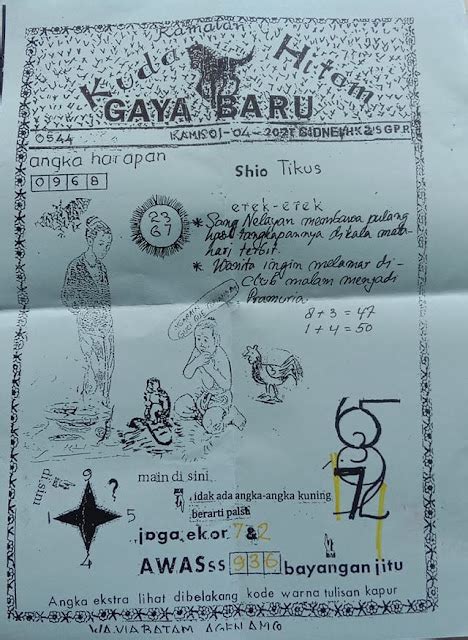 Ramalan
Kuda Hitam
GAYA BARU
0544
KAMIS 01-04-2021 SIDNEY/HK&SGPR
angka harapan
0968
Shio Tikus
23
67
erek-erek
* Sang Nelayan membawa pulang
hasil tangkapannya dikala mata-
hari terbit.
* Wanita ingin melamar di-
Club malam menjadi
Pramuria
8+3 = 47
1+4 = 50
65
3
72
9
?
disini
1
5
4
main di sini
idak ada angka-angka kuning
berarti palsu
joga ekor 7&2
AWASss 936 bayangan jitu
Angka ekstra lihat dibelakang kode warna tulisan kapur